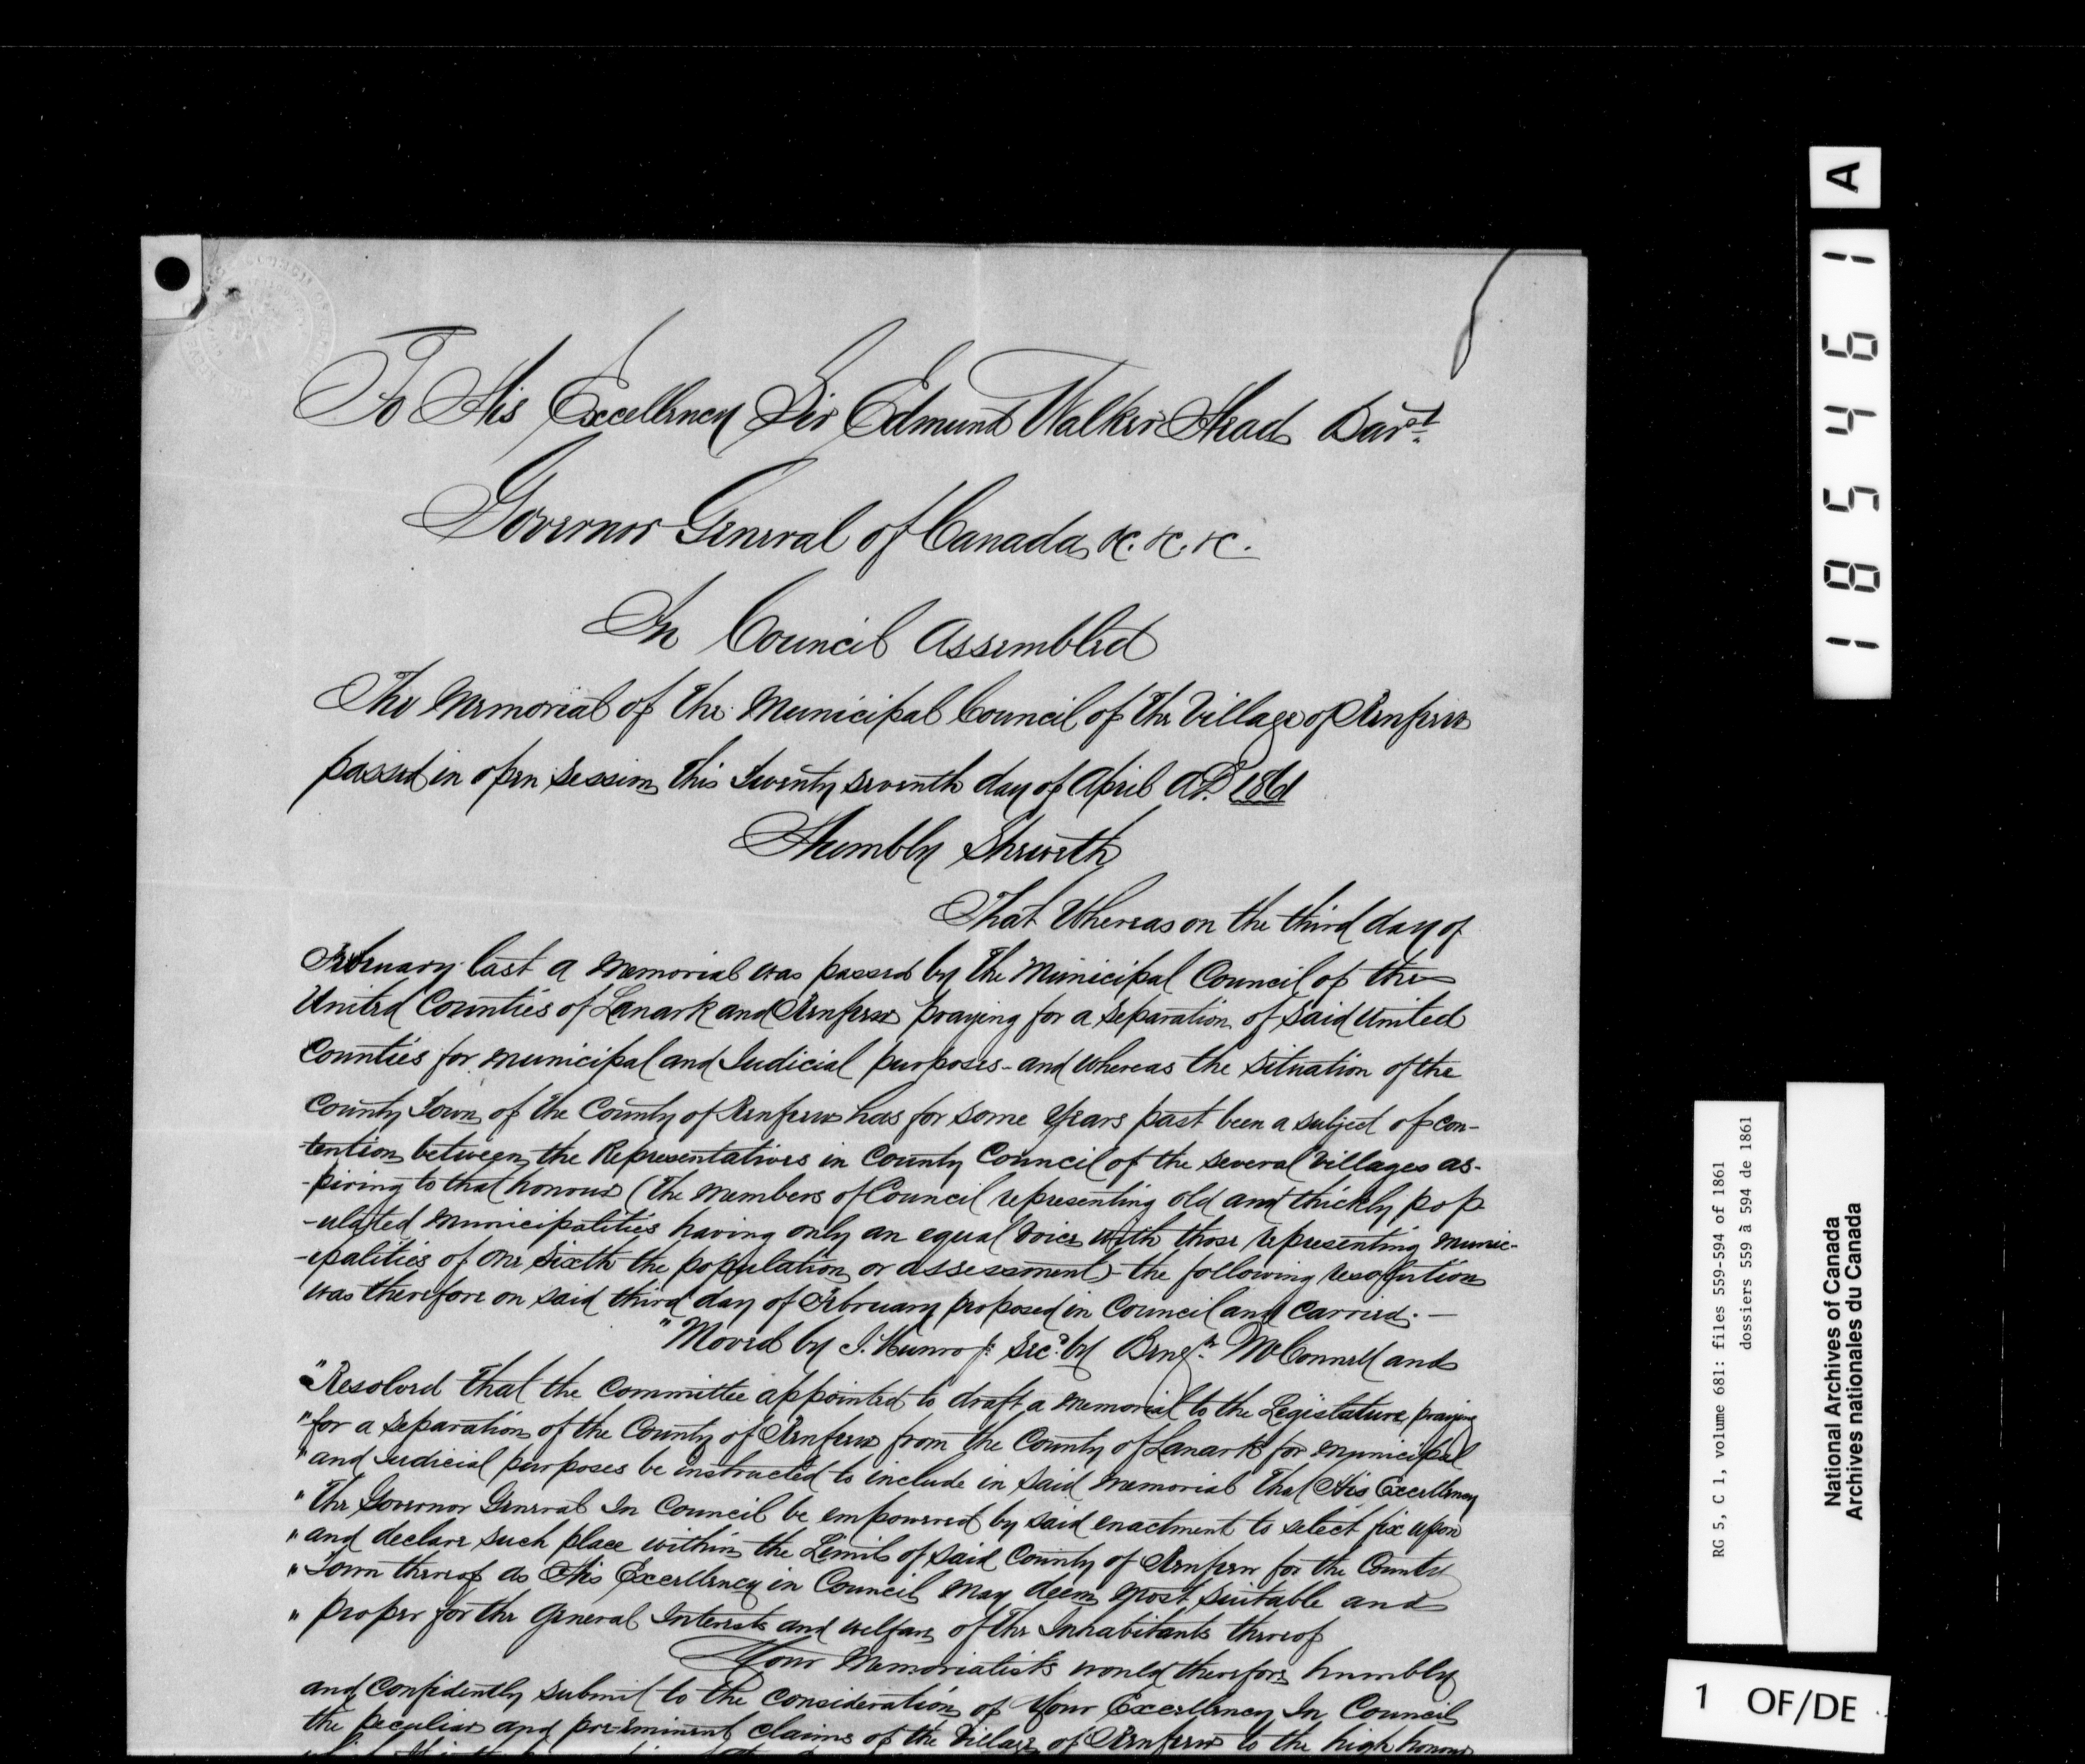 To His Excellency Sir Edmund Walker Head Bart.
Governor General of Canada &c. &c. &c.
In Council Assembled
The Memorial of the Municipal Council of the Village of Renfrew
passed in open session this Twenty seventh day of April A.D. 1861
Humbly Sheweth
That Whereas on the third day of
February last a Memorial was passed by the Municipal Council of the
United Counties of Lanark and Renfrew praying for a separation of said United
Counties for municipal and Judicial purposes - and whereas the situation of the
County Town of the County of Renfrew has for some years past been a subject of con-
-tention between the Representatives in County Council of the several Villages as-
-piring to that honour (the members of Council representing old and thickly pop
-ulated Municipalities having only an equal voice with those representing Munic-
-ipalities of one sixth the population or assessment) - the following resolution
was therefore on said third day of February proposed in Council and carried. —
"Moved by J. Munro Jr. Sec.d by Benj.n McConnell and
"Resolved That the Committee appointed to draft a memorial to the Legislature, praying
"for a separation of the County of Renfrew from the County of Lanark for municipal
"and Judicial purposes be instructed to include in said memorial that His Excellency
"The Governor General In Council be empowered by said enactment to select fix upon
"and declare such place within the Limits of said County of Renfrew for the County
"Town thereof as His Excellency in Council may deem most suitable and
"proper for the General Interests and welfare of the Inhabitants thereof
Your Memorialists would therefore humbly
and confidently submit to the consideration of Your Excellency In Council
the peculiar and pre-eminent claims of the Village of Renfrew to the high honour
A
185461
RG 5, C 1, volume 681: files 559-594 of 1861
dossiers 559 à 594 de 1861
National Archives of Canada
Archives nationales du Canada
1 OF/DE